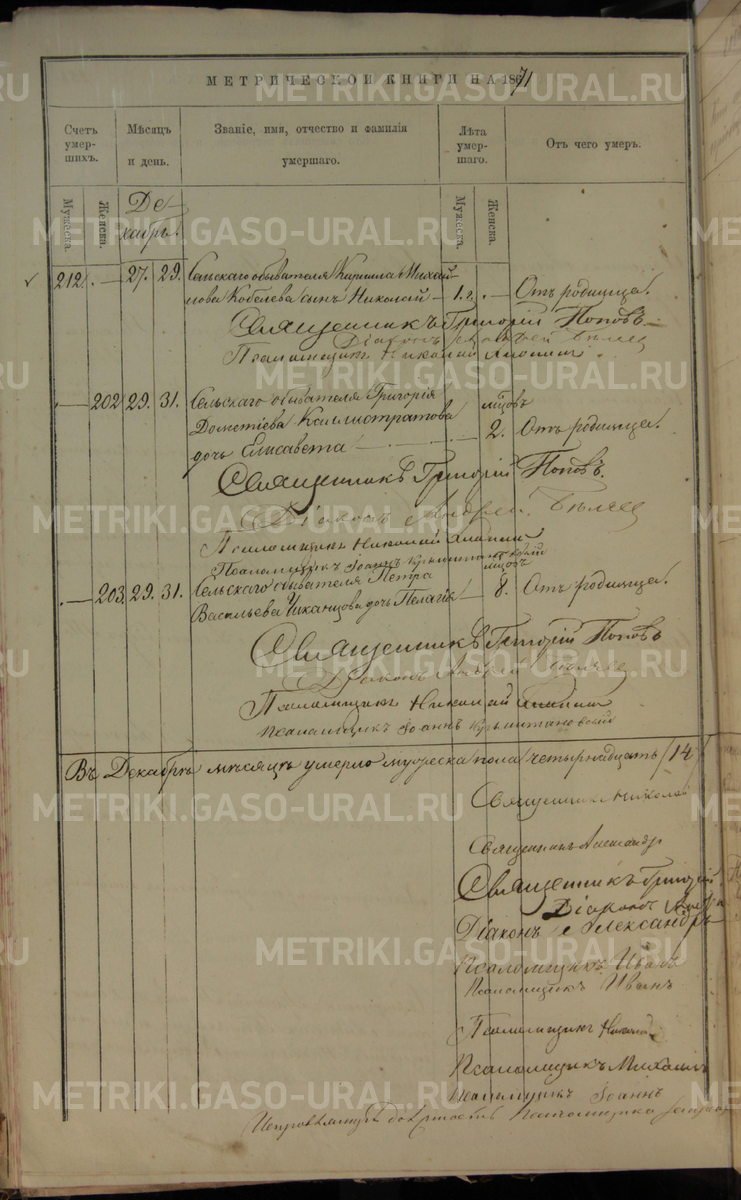 МЕТРИЧЕСКОЙ КНИГИ НА 1871
Счетъ умершихъ.
Мѣсяцъ и день.
Званіе, имя, отчество и фамилія умершаго.
Лѣта умершаго.
Отъ чего умеръ.
Мужеска.
Женска.
Декабрь.
Мужеска.
Женска.
212. — 27. 29. обывателя Кирилла Михай-
лова Кобелева сынъ Николай — 1. г. — Отъ родимца.
Священникъ Григорій Поповъ
Діаконъ Андрей Бѣляев
Псаломщикъ Николай
— 202. 29. 31. Сельскаго обывателя Григорія
Дометіева Каллистратова
мѣсцовъ
дочь Елисавета — 2. Отъ родимца.
Священникъ Григорій Поповъ.
Діаконъ Андрей Бѣляев
Псаломщикъ Николай
Псаломщикъ Іоаннъ
мѣсцовъ
— 203. 29. 31. Сельскаго обывателя Петра
Васильева дочь Пелагія — 8. Отъ родимца.
Священникъ Григорій Поповъ
Діаконъ Андрей Бѣляев
Псаломщикъ Николай
Псаломщикъ Іоаннъ
Въ Декабрѣ мѣсяцѣ умерло мужеска пола четырнадцать /14/
Священник Николай
Священникъ Александр
Священникъ Григорій
Діаконъ Андрей
Діаконъ Александръ
Псаломщикъ Иванъ
Псаломщикъ Иванъ
Псаломщикъ Николай
Псаломщикъ Михаилъ
Псаломщикъ Іоаннъ
должность Псаломщика
METRIKI.GASO-URAL.RU